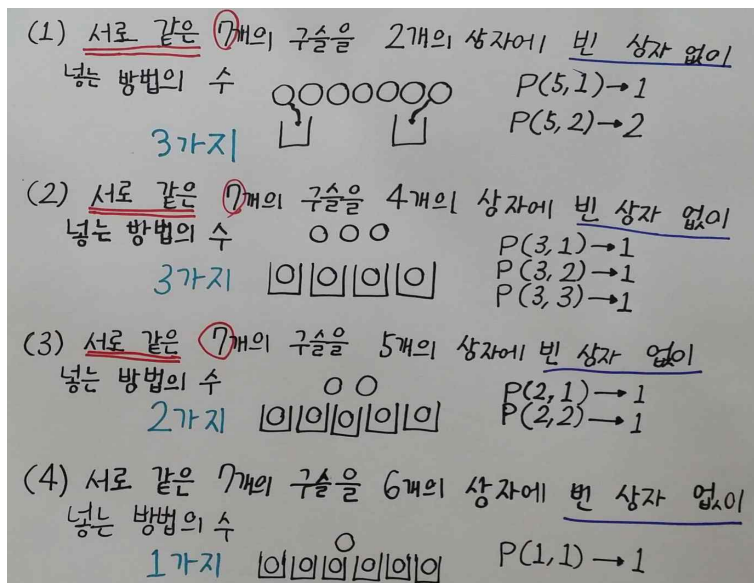 (1) 서로 같은 7개의 구슬을 2개의 상자에 빈 상자 없이
넣는 방법의 수
P(5,1)→1
P(5,2)→2
3가지
(2) 서로 같은 7개의 구슬을 4개의 상자에 빈 상자 없이
넣는 방법의 수
P(3,1)→1
P(3,2)→1
P(3,3)→1
3가지
(3) 서로 같은 7개의 구슬을 5개의 상자에 빈 상자 없이
넣는 방법의 수
P(2,1)→1
P(2,2)→1
2가지
(4) 서로 같은 7개의 구슬을 6개의 상자에 빈 상자 없이
넣는 방법의 수
1가지
P(1,1)→1